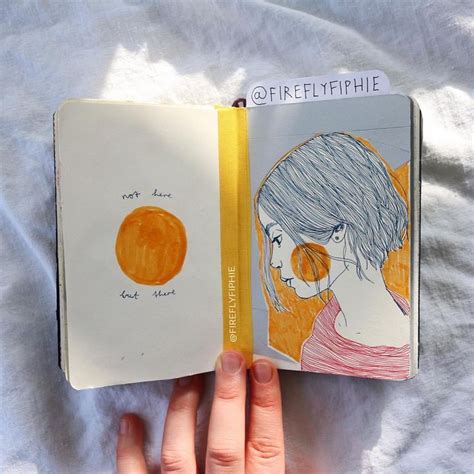 @FIREFLYFIPHIE
not here
but there
@FIREFLYFIPHIE